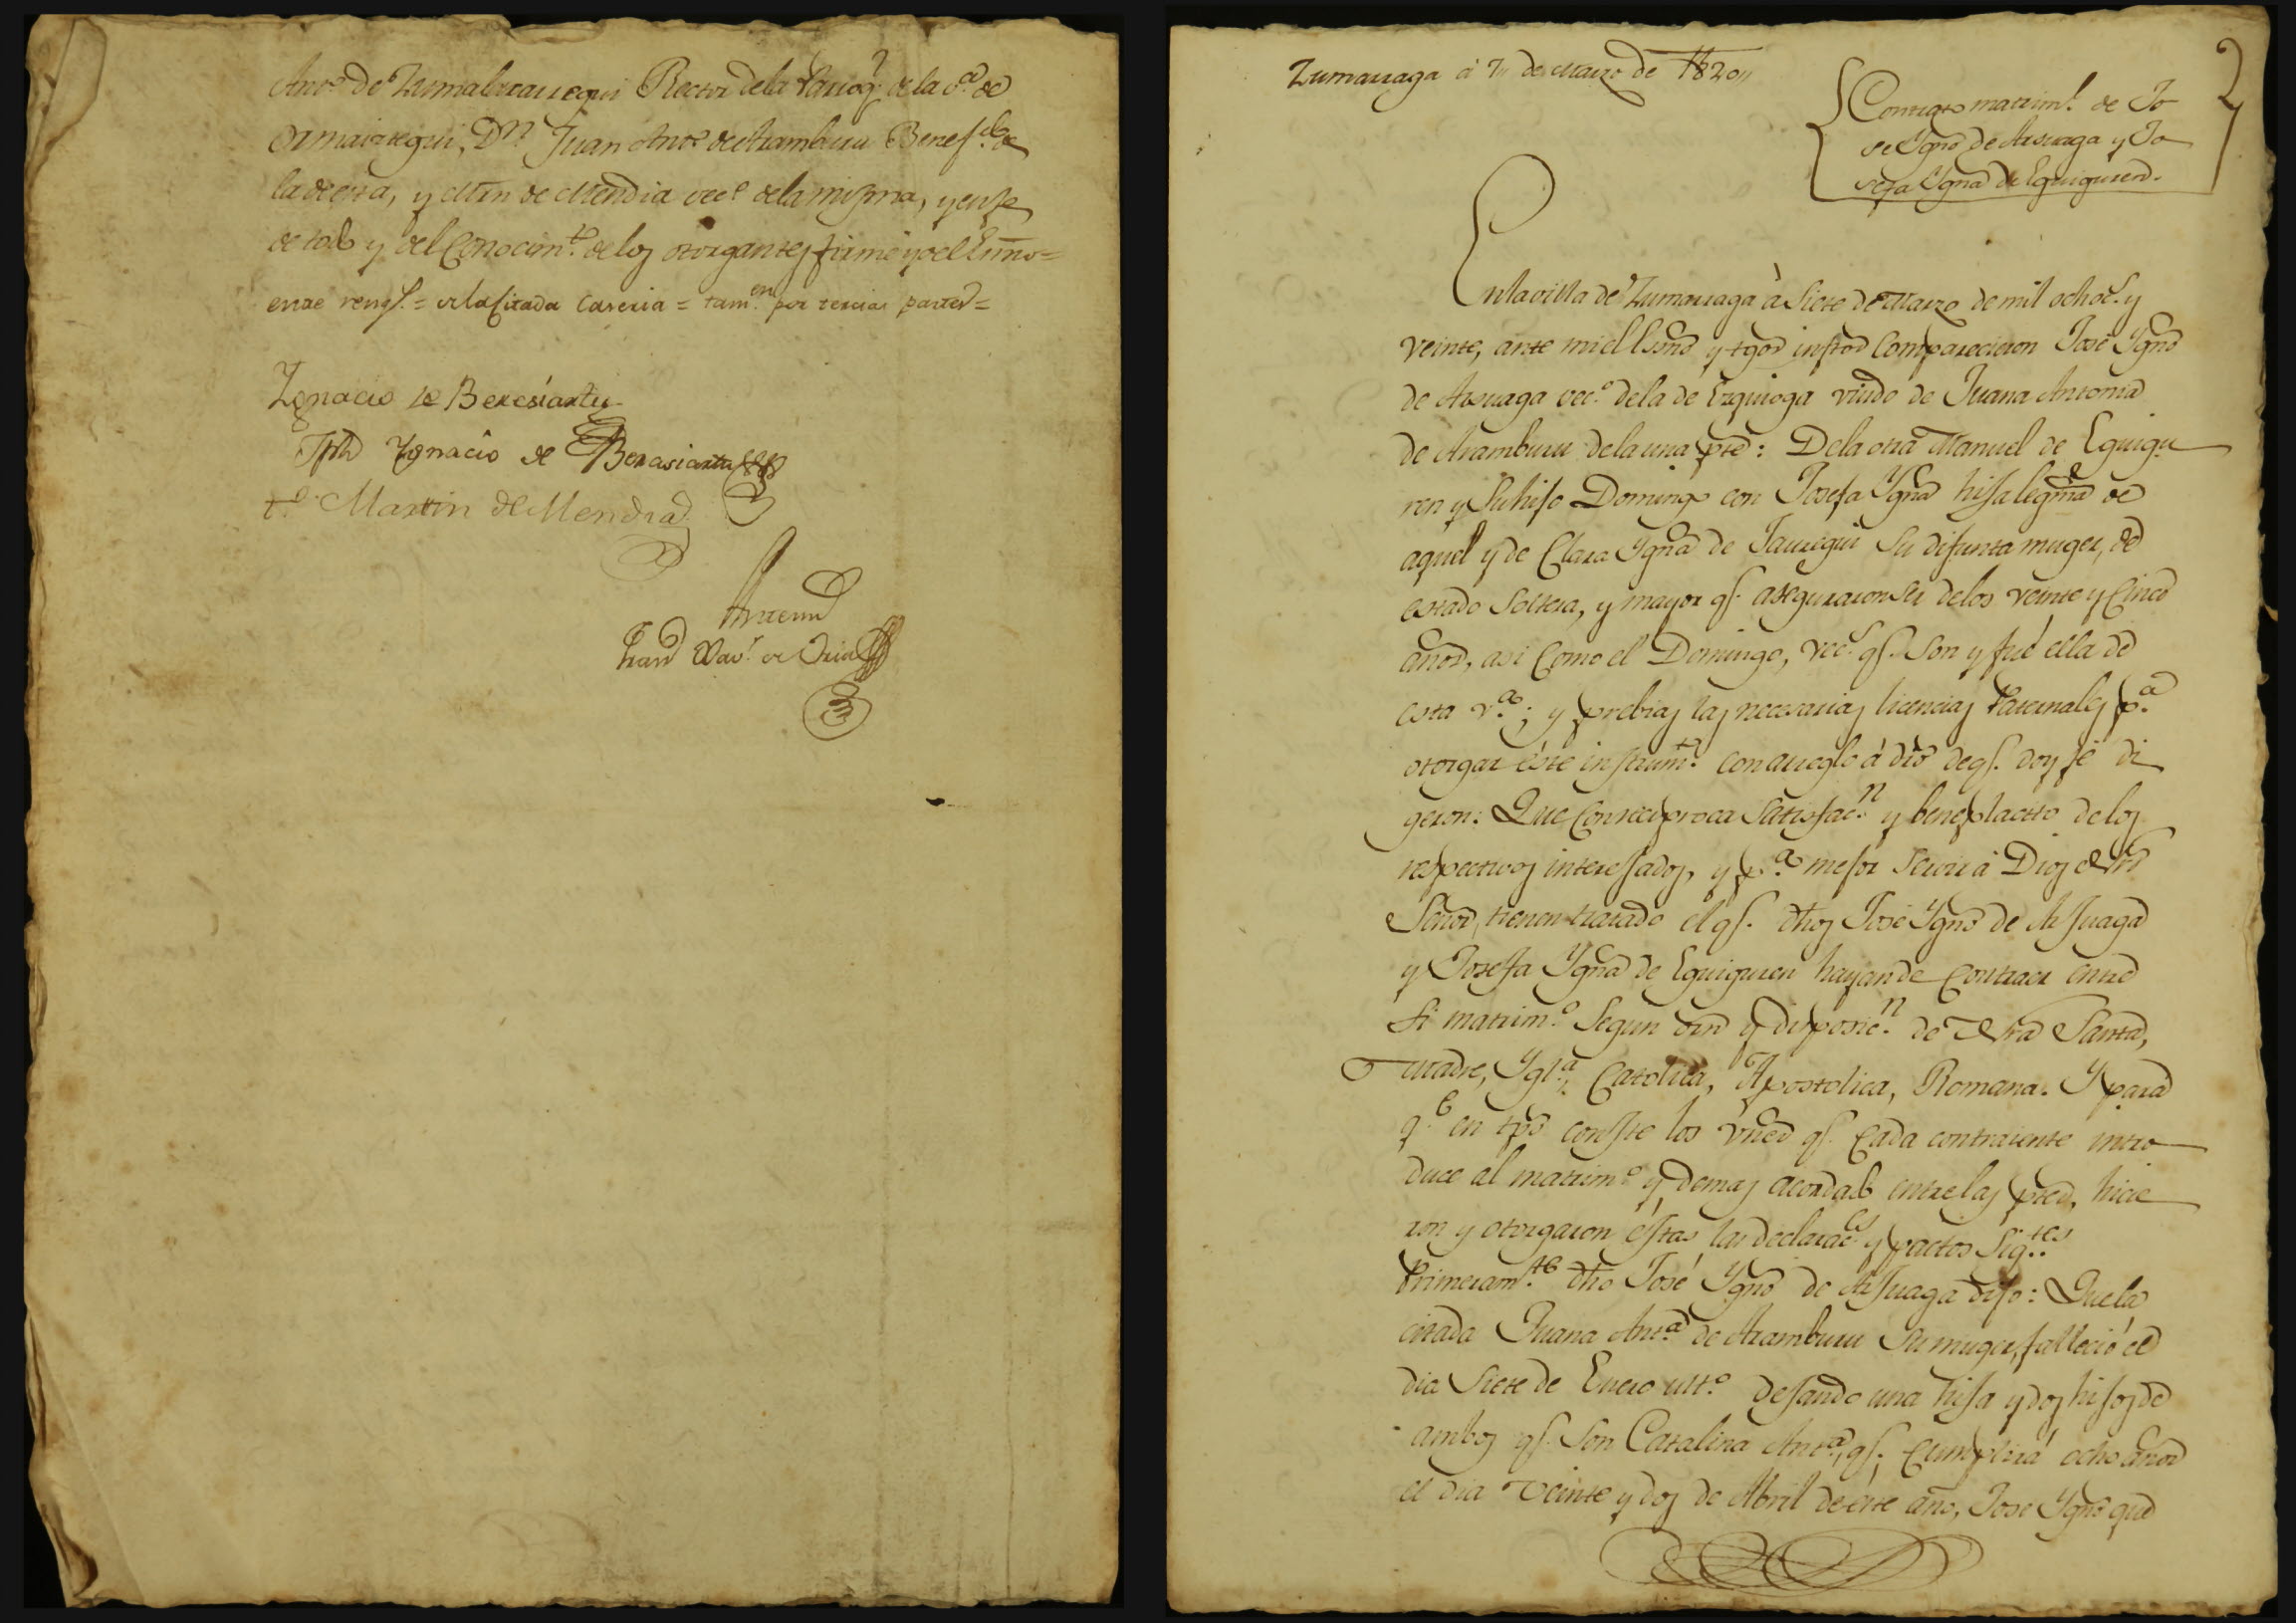 Anto de Zumalacarregui Rector dela Parroq. de la va. de
Ormaiztegui, Dn. Juan Anto de Aramburu Benefdo. de
la de esta, y Mrn de Mendia veco. dela misma, y en fe
de todo y del Conocimto. delos otorgantes firmé yo el Essno=
entre rengs.= de la citada caseria = tamen. por tercias partes=
Ygnacio de Beresiartu
Jph Ygnacio de Berasiartu
to. Martin de Mendia
Ante mi
Franco Xavr. de Oria
Zumarraga á 7,, de Marzo de 1820,,
2
Contrato matriml. de Jo
se Ygno de Aisuaga y Jo
sefa Ygna de Eguiguren.
En la villa de Zumarraga à Siete de Marzo de mil ochocs. y
veinte, ante mi el Essno y tgos infros Comparecieron José Ygno
de Aisuaga veco. dela de Ezquioga viudo de Juana Antonia
de Aramburu dela una pte: Dela otra Manuel de Eguigu
ren y Su hijo Domingo con Josefa Ygna hija legma de
aquel y de Clara Ygna de Jauregui Su difunta muger, de
estado Soltera, y mayor qe. aseguraron ser delos veinte y Cinco
años, asi Como el Domingo, vecs. qe. Son y fué ella de
esta va.; y prebias las necesarias licencias Paternales pa.
otorgar éste instrumto. con arreglo á dro de qe. doy fé di
geron: Que Con reciproca Satisfacn. y beneplacito de los
respectivos interesados, y pa. mejor Servir á Dios Nro
Señor, tienen tratado el qe. dhos José Ygno de Aisuaga
y Josefa Ygna de Eguiguren hayan de Contraer entre
Si matrimo. Segun orn y disposicn. de Nra Santa
Madre, Ygla. Catolica, Apostolica, Romana. Y para
qe. en tpo conste los vnes qe. Cada contraiente intro
duce al matrimo y demas acordado entre las ptes, hicie
ron y otorgaron éstas las declaraces y pactos Sigtes.
Primeramte. dho José Ygno de Aisuaga dijo: Que la
citada Juana Anta. de Aramburu Su muger, falleció el
dia Siete de Enero ulto. dejando una hija y dos hijos de
ambos qe. Son Catalina Anta., qe. Cumplirá ocho años
el dia Veinte y dos de Abril de este año, Jose Ygno que